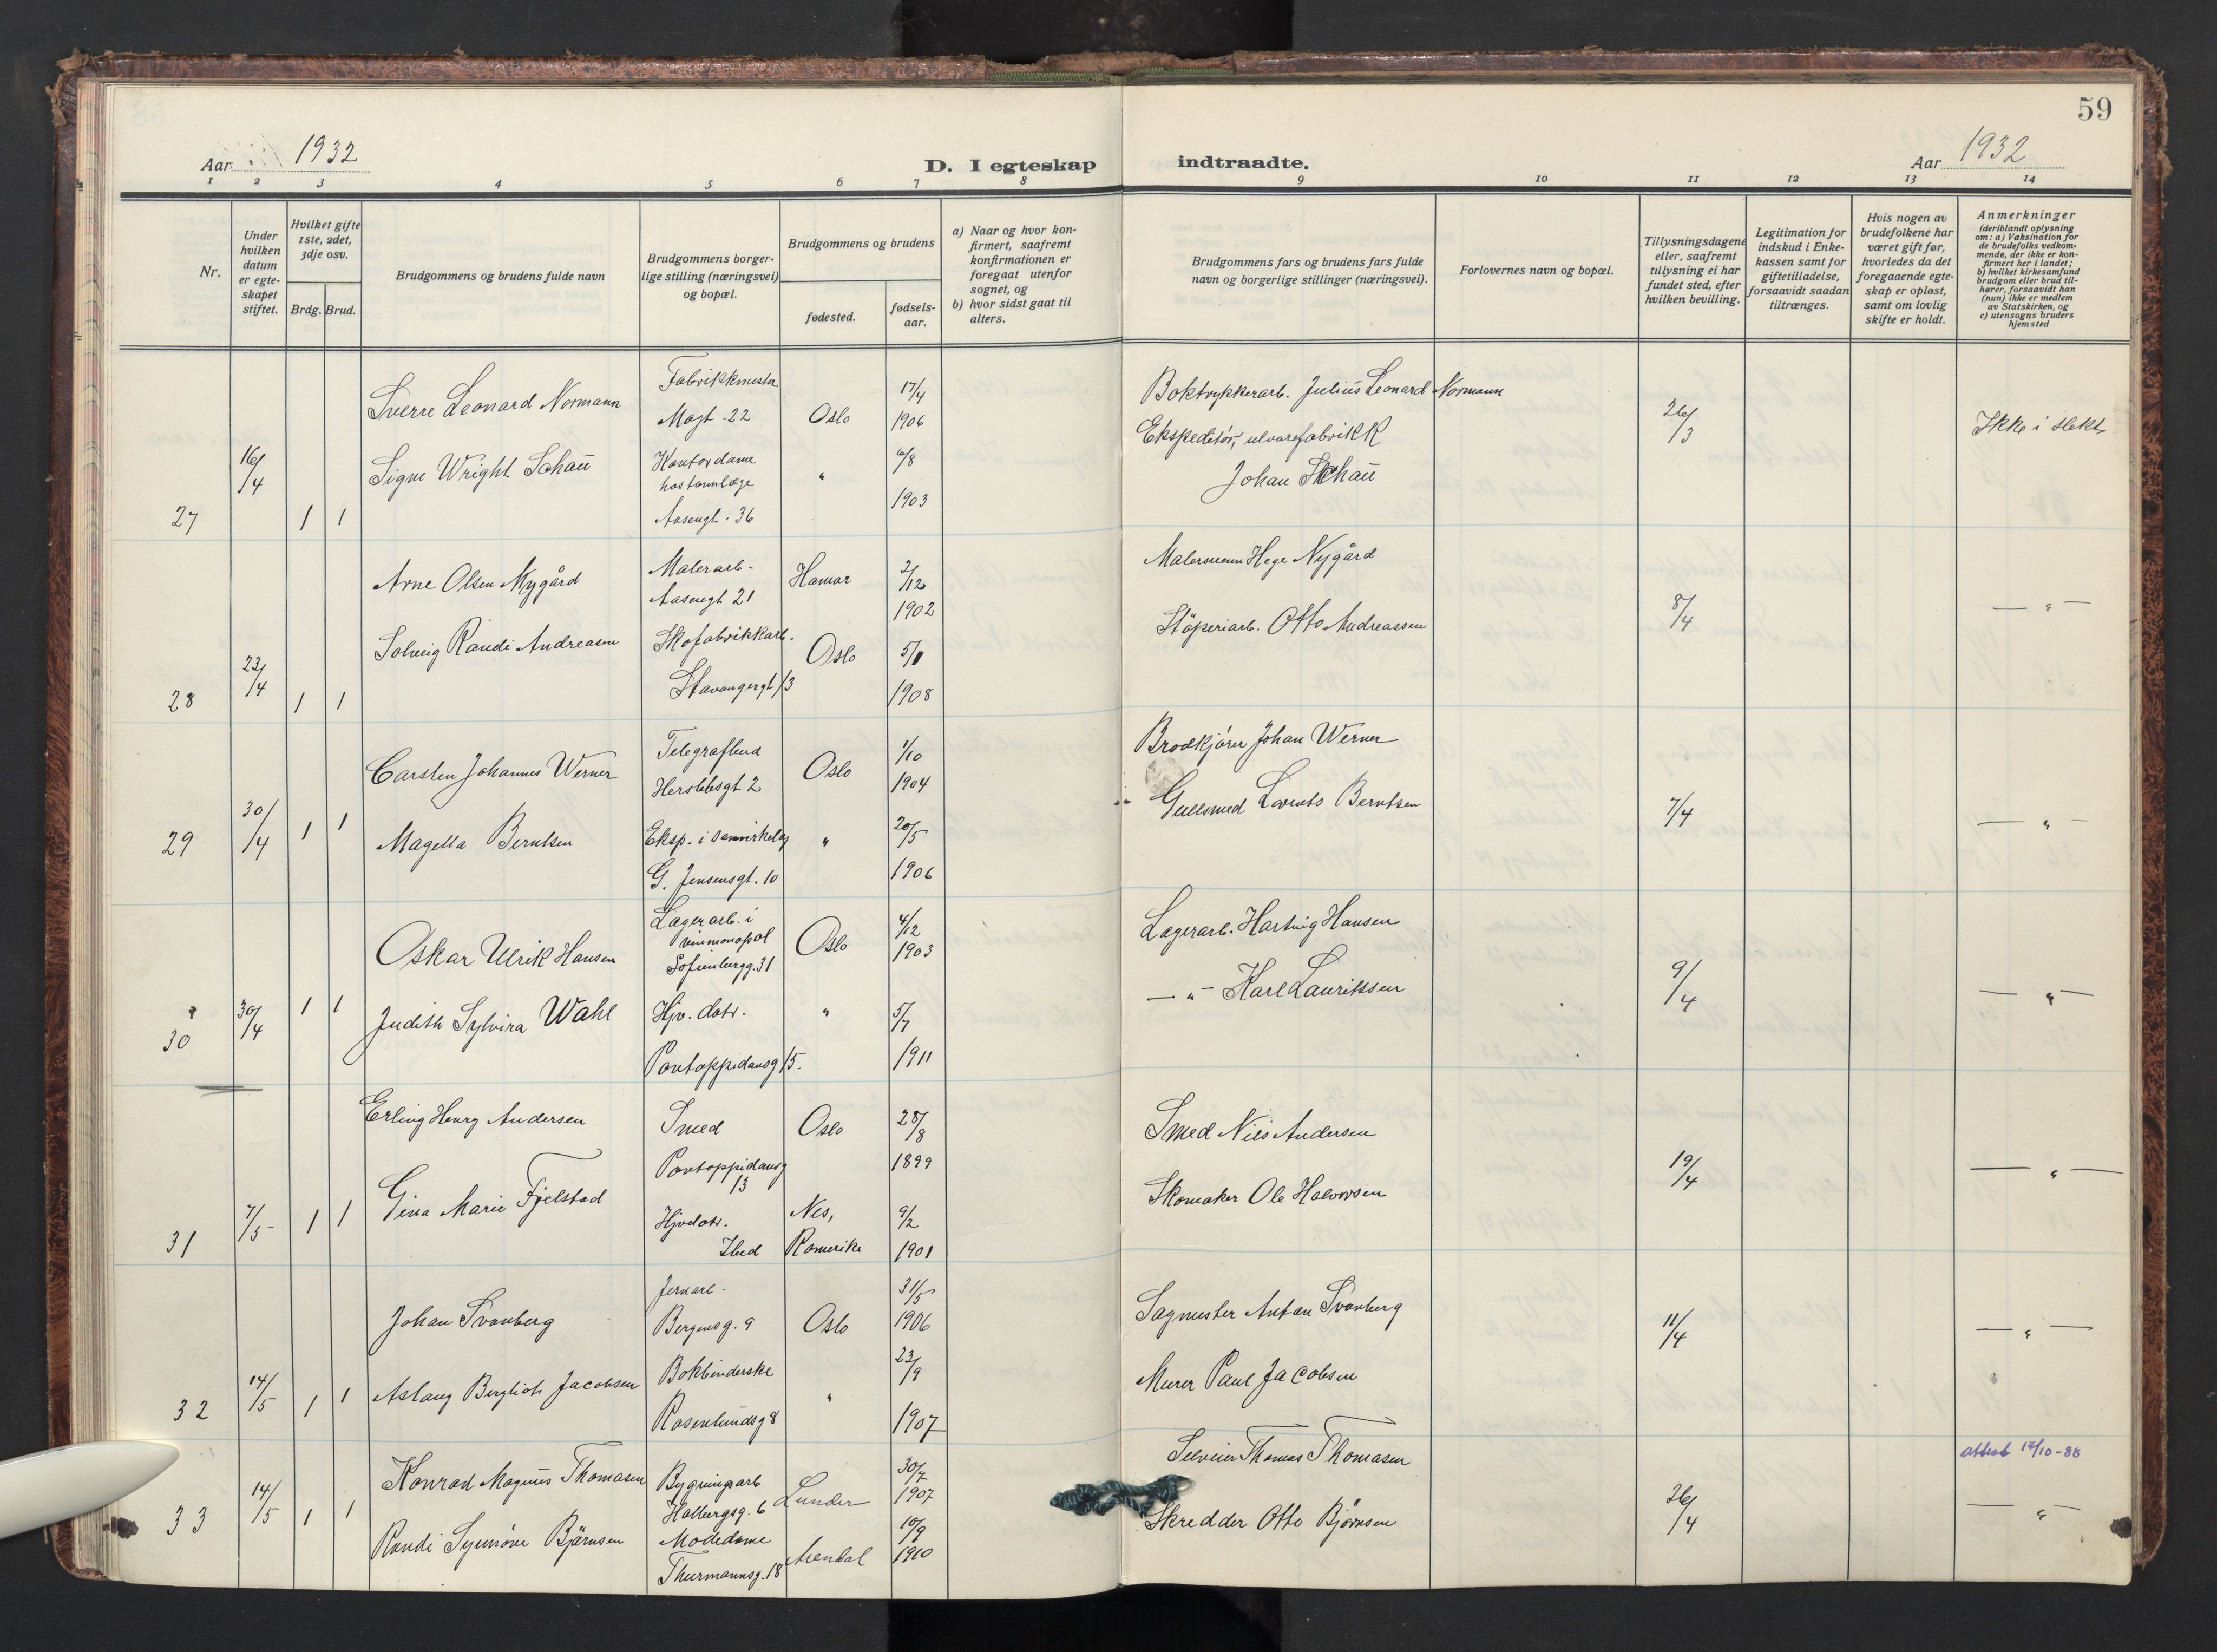 59
Aar 1932
D. I egteskap indtraadte.
Aar 1932
1 2 3 4 5 6 7 8 9 10 11 12 13 14
Nr.
Under hvilken datum er egteskapet stiftet.
Hvilket gifte 1ste, 2det, 3dje osv.
Brdg. Brud.
Brudgommens og brudens fulde navn
Brudgommens borgerlige stilling (næringsvei) og bopæl.
Brudgommens og brudens
fødested.
fødselsaar.
a) Naar og hvor konfirmert, saafremt konfirmationen er foregaat utenfor sognet, og
b) hvor sidst gaat til alters.
Brudgommens fars og brudens fars fulde navn og borgerlige stillinger (næringsvei).
Forlovernes navn og bopæl.
Tillysningsdagene eller, saafremt tillysning ei har fundet sted, efter hvilken bevilling.
Legitimation for indskud i Enkekassen samt for giftetilladelse, forsaavidt saadan tiltrænges.
Hvis nogen av brudefolkene har været gift før, hvorledes da det foregaaende egteskap er opløst, samt om lovlig skifte er holdt.
Anmerkninger (deriblandt oplysning om: a) Vaksination for de brudefolks vedkommende, der ikke er konfirmert her i landet; b) hvilket kirkesamfund brudgom eller brud tilhører, forsaavidt han (hun) ikke er medlem av Statskirken, og c) utensogns bruders hjemsted
27 16/4 1 1
Sverre Leonard Normann Fabrikkmester Magt. 22 Oslo 17/4 1906
Boktrykkerarb. Julius Leonard Normann 26/3 Ikke i slekt
Signe Wright Schau Kontordame hos tannlæge Aasengt. 36 " /8 1903
Ekspeditör, ulvarefabrikk Johan Schau
28 23/4 1 1
Arne Olsen Nygård Malerarb. Aasengt 21 Hamar 2/12 1902
Malersvenn Hege Nygård 8/4 — " —
Solveig Randi Andreasen Skofabrikkarb. Stavangergt 13 Oslo 5/1 1908
Stöperiarb. Otto Andreassen
29 30/4 1 1
Carsten Johannes Werner Telegrafbud Herslebsgt 2 Oslo 1/10 1904
Brödkjörer Johan Werner 7/4 — " —
Magella Berntsen Eksp. i samvirkelag G. Jensensgt. 10 " 20/5 1906
Gullsmed Lorents Berntsen
30 30/4 1 1
Oskar Ulrik Hansen Lagerarb. i vinmonopol Sofienbergg. 31 Oslo 4/12 1903
Lagerarb. Hartvig Hansen 9/4 — " —
Judith Sylvira Wahl Hjv. datr. Pontoppidansg 15. " 5/7 1911
— " — Karl Lauritssen
31 7/5 1 1
Erling Henry Andersen Smed Pontoppidansg 13 Oslo 28/8 1899
Smed Nils Andersen 19/4 — " —
Gina Marie Fjelstad Hjvdatr. Ibid Nes, Romerike 9/2 1901
Skomaker Ole Halvorsen
32 14/5 1 1
Johan Svanberg Jernarb. Bergensg. 9 Oslo 31/5 1906
Sagmester Anton Svanberg 11/4 — " —
Aslaug Bergliot Jacobsen Bokbinderske Rosenlundsg 8 " 23/9 1907
Murer Paul Jacobsen
33 14/5 1 1
Konrad Magnus Thomasen Bygningsarb Holbergsg. 6 Lunder 30/7 1907
Selveier Thomas Thomasen 26/4 attest 17/10-88 — " —
Randi Synnöve Björnsen Modedame Thurmannsg. 18 Arendal 10/9 1910
Skredder Otto Björnsen